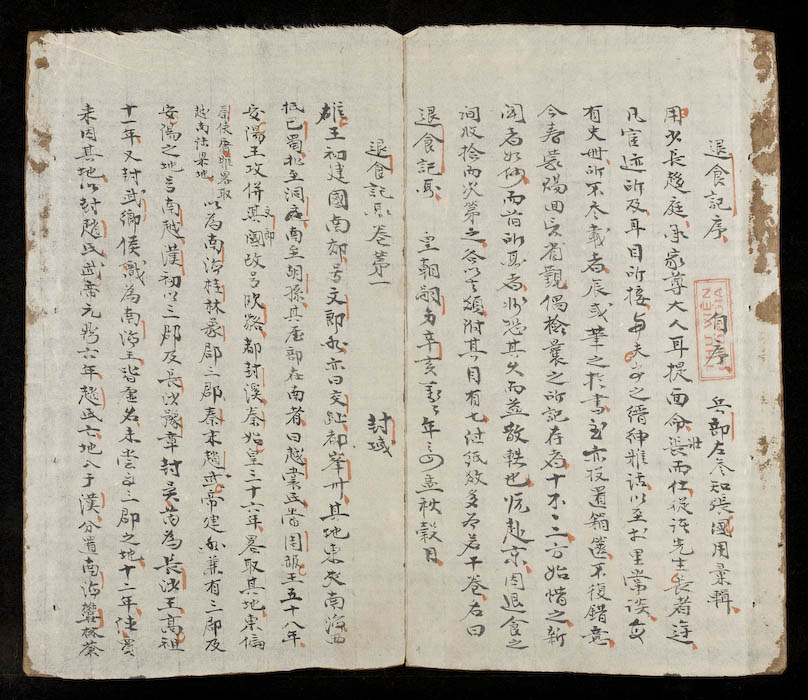 退食記序 自序 兵部左参知張國用彙輯
用少長趨庭承家尊大人耳提面命長壯而仕從諸先生長者遊
凡宦迹所及耳目所接與夫之縉紳雅話以至於里常談
有史冊所不尽載者辰或筆之於書亦投置箱篋不復錯意
今春蒙陽回省覲偶檢曩之所記存者十不二三方始惜之新
聞者如仰而前所其者恐其久而益散軼也赴京因退食之
詞收拾而次第之合以附其目有七付紙散多為若干卷名曰
退食記聞 皇朝嗣 辛亥年之孟秋穀日
退食記聞卷第一
封域
雄王初建國南郊号文郎亦曰交趾都峯州其地東夾南海西
抵巴蜀北至洞庭南至胡孫其屋部在南者曰越裳氏當周赧王五十八年
安陽王攻併其文郎國改号甌貉都封溪秦始皇三十六年畧取其地東偏
屠使唯畧取
越南諸梁地
以為南海桂林象郡三郡秦末趙武帝建兼有三郡及
安陽之地号南越漢初以三郡及長沙豫章封吳芮為長沙王高祖
十一年又封武鄉侯織為南海王皆虛名未嘗三郡之地十二年使
未因其地以封趙氏武帝元鼎六年趙氏亡地入于漢分置南海欝林蒼